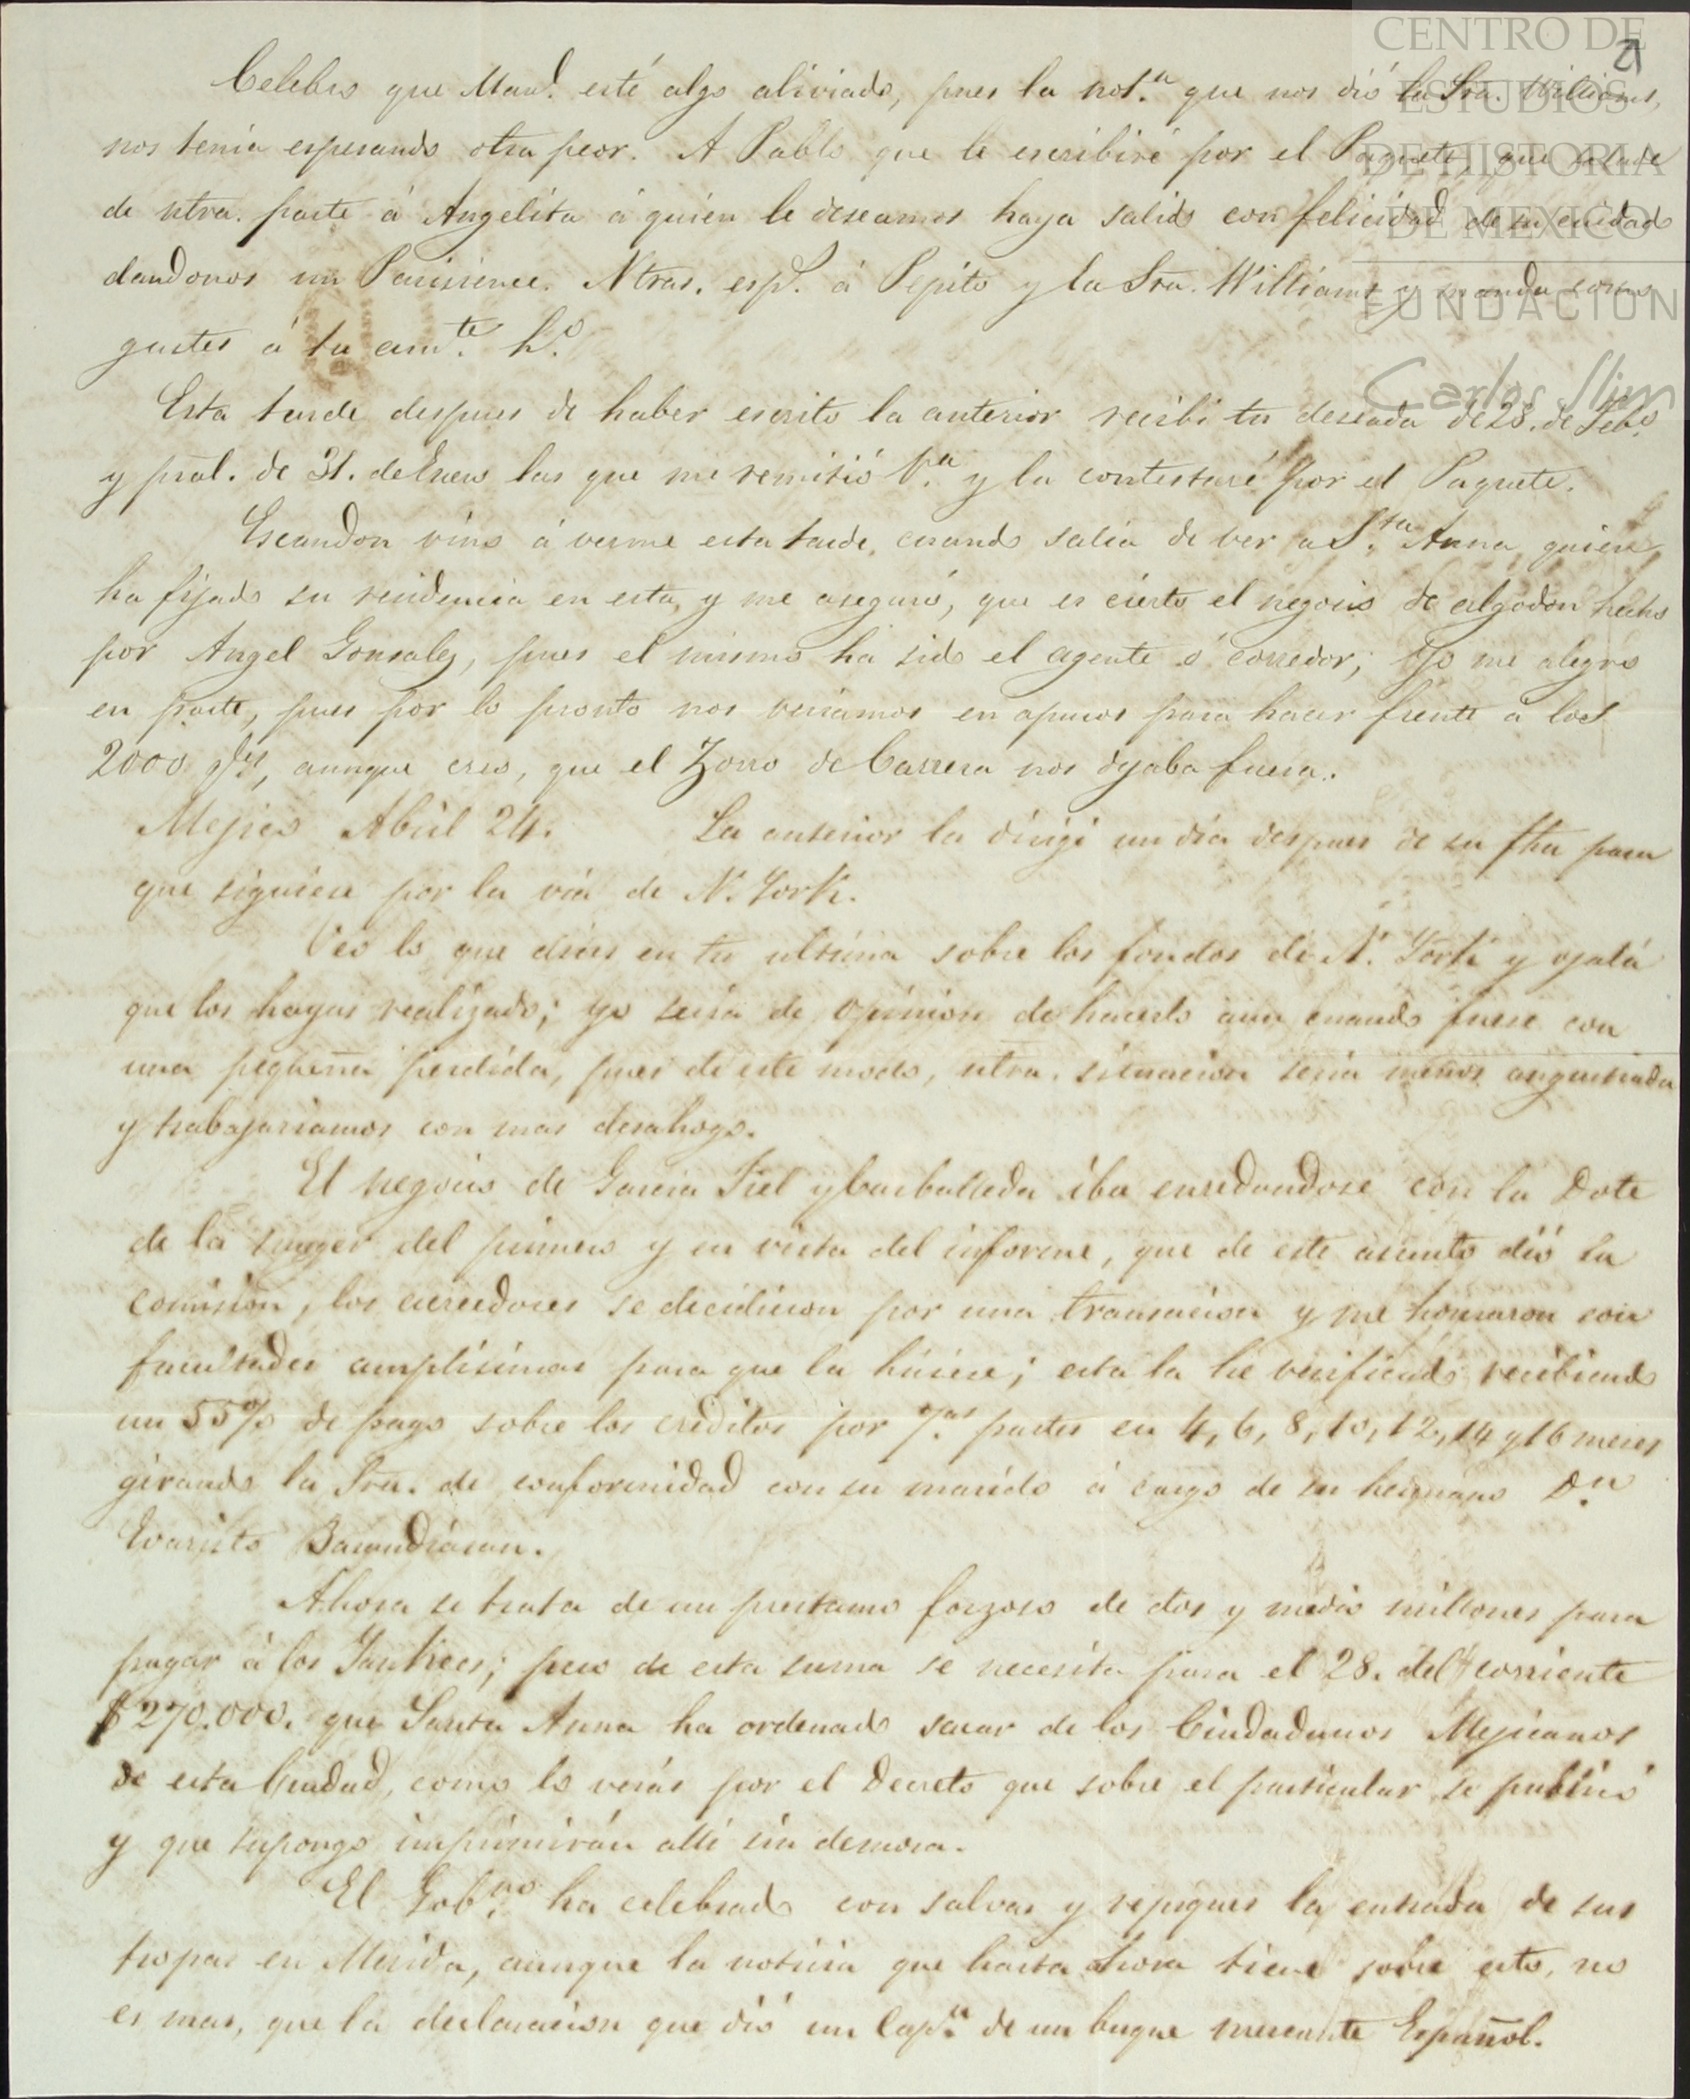 21
CENTRO DE
ESTUDIOS
DE HISTORIA
DE MEXICO
FUNDACION
Carlos Slim
Celebro que Man.l esté algo aliviado, pues la not.a que nos dió la Sra. Williams,
nos tenia esperando otra peor. A Pablo que le escribiré por el Paquete, que salude
de ntra. parte á Angelita á quien le deseamos haya salido con felicidad de su cuidado
dandonos un Parisience. Ntras. esp.s á Pepito y la Sra. Williams y manda como
gustes á tu am.te h.o
Esta tarde despues de haber escrito la anterior recibi tu deseada de 28. de Feb.o
y pral. de 31. de Enero las que me remitió V.a y la contestaré por el Paquete.
Escandon vino á verme esta tarde, cuando salia de ver a S.ta Anna, quien
ha fijado su residencia en esta, y me aseguró, que es cierto el negocio de algodon hecho
por Angel Gonsalez, pues el mismo ha sido el agente ó corredor; Yo me alegro
en parte, pues por lo pronto nos veriamos en apuros para hacer frente a los
2000 qles, aunque creo, que el Zorro de Carrera nos dejaba fuera.
Mejico Abril 24. La anterior la dirigi un dia despues de su fha para
que siguiese por la via de N. York.
Veo lo que dices en tu ultima sobre los fondos de N. York y ojalá
que los hayas realizado; yo seria de opinion de hacerlo aun cuando fuese con
una pequeña perdida, pues de este modo, ntra. situacion seria menos angustiada
y trabajariamos con mas desahogo.
El negocio de Garcia Fiel y Carballeda iba enredandose con la Dote
de la muger del primero y en vista del informe, que de este asunto dió la
comision, los acreedores se decidieron por una transacion y me honraron con
facultades amplisimas para que la hiciese; esta la he verificado recibiendo
un 55% de pago sobre los creditos por 7.as partes en 4, 6, 8, 10, 12, 14 y 16 meses
girando la Sra. de conformidad con su marido á cargo de su hermano D.n
Evaristo Barandiaran.
Ahora se trata de un prestamo forzoso de dos y medio millones para
pagar á los Yankees; pero de esta suma se necesita para el 28. del corriente
$270.000. que Santa Anna ha ordenado sacar de los Ciudadanos Mejicanos
de esta Ciudad, como lo verás por el Decreto que sobre el particular se publicó
y que supongo imprimirán allí sin demora.
El Gob.no ha celebrado con salvas y repiques la entrada de sus
tropas en Merida, aunque la noticia que hasta ahora tiene sobre esto, no
es mas, que la declaracion que dió un Cap.n de un buque mercante Español.